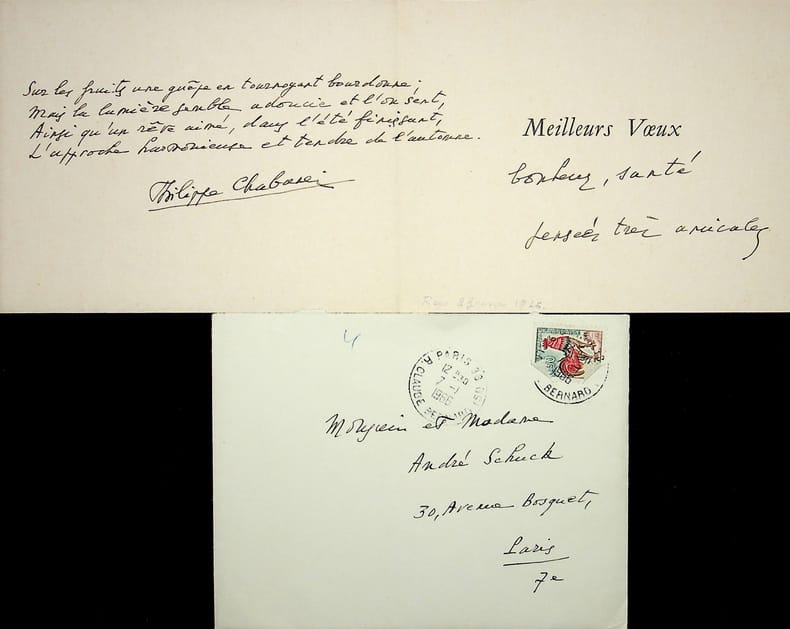 Sur les fruits une guêpe en tournoyant bourdonne;
Mais la lumière semble adoucie et l'on sent,
Ainsi qu'un rêve aimé, dans l'été finissant,
L'approche harmonieuse et tendre de l'automne.
Philippe Chabaneix
Meilleurs Vœux
bonheur, santé
pensées très amicales
4
PARIS
12 H30
7 - 1
1966
R. CLAUDE BERNARD
1966
BERNARD
Monsieur et Madame
André Schuck
30, Avenue Bosquet,
Paris
7e